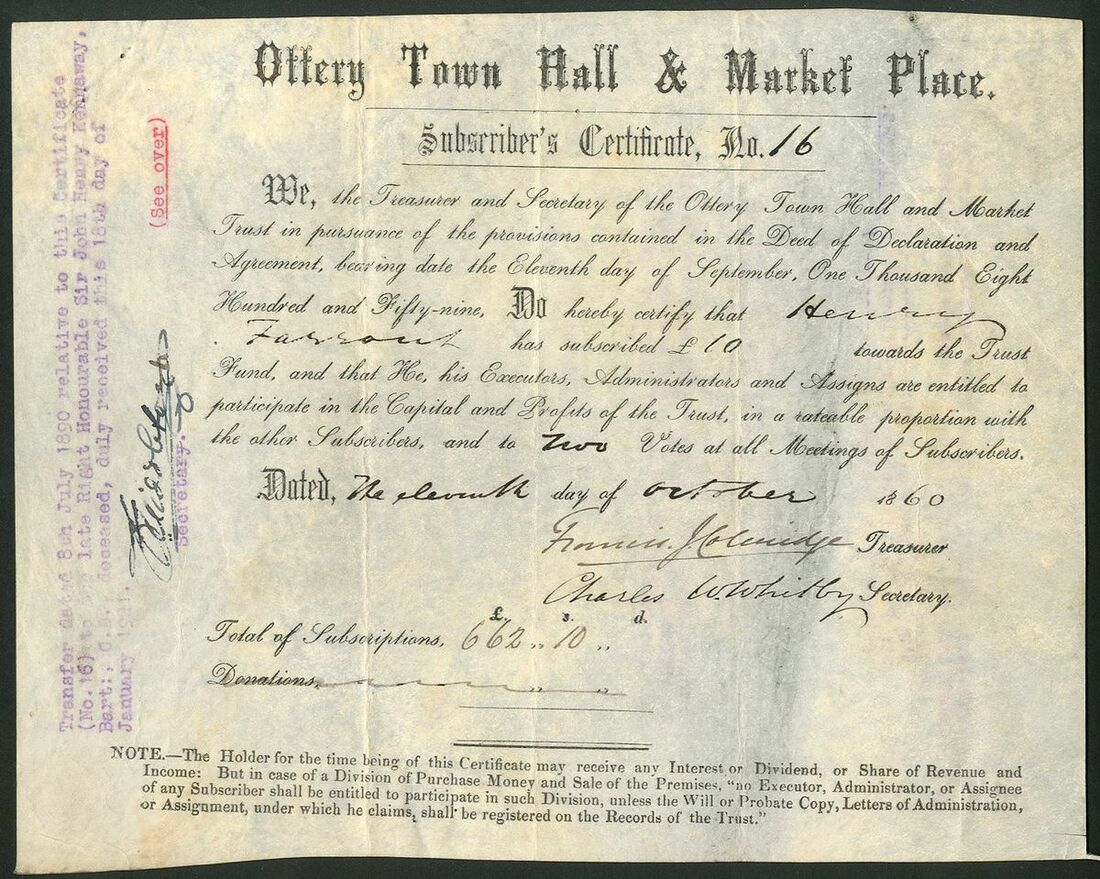 Ottery Town Hall & Market Place.
Subscriber's Certificate, No. 16
We, the Treasurer and Secretary of the Ottery Town Hall and Market
Trust in pursuance of the provisions contained in the Deed of Declaration and
Agreement, bearing date the Eleventh day of September, One Thousand Eight
Hundred and Fifty-nine, Do hereby certify that Henry
Farrant has subscribed £ 10 towards the Trust
Fund, and that He, his Executors, Administrators and Assigns are entitled to
participate in the Capital and Profits of the Trust, in a rateable proportion with
the other Subscribers, and to Two Votes at all Meetings of Subscribers.
Dated, The eleventh day of October 1860
Francis J Coleridge Treasurer
Charles W. Whitby Secretary.
£. s. d.
Total of Subscriptions, 662 „ 10 „
Donations, „ „
NOTE.—The Holder for the time being of this Certificate may receive any Interest or Dividend, or Share of Revenue and
Income: But in case of a Division of Purchase Money and Sale of the Premises, "no Executor, Administrator, or Assignee
of any Subscriber shall be entitled to participate in such Division, unless the Will or Probate Copy, Letters of Administration,
or Assignment, under which he claims, shall be registered on the Records of the Trust."
Transfer dated 8th July 1890 relative to this Certificate
(No.16) to late Right Honourable Sir John Henry Kennaway,
Bart:, C.B., deceased, duly received this 18th day of
January
Secretary.
(See over)